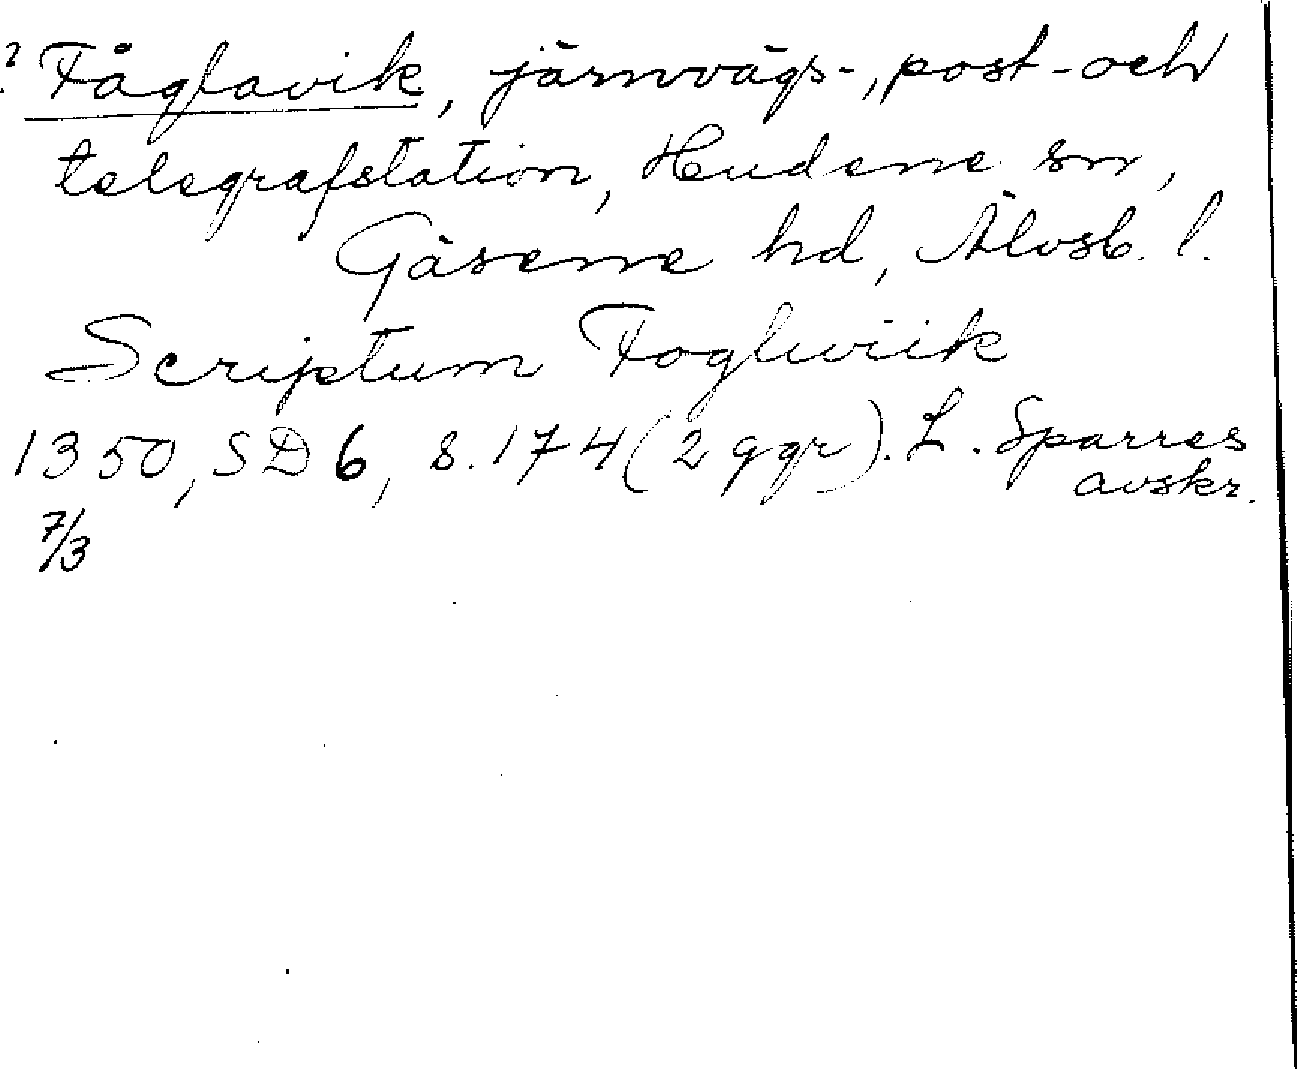 ? Fåglavik, järnvägs-, post- och
telegrafstation, Hudene sn,
Gäsene hd, Älvsb. l.
Scriptum Fogluviik
1350, SD 6, s. 174 (2 ggr). L. Sparres
avskr.
7/3